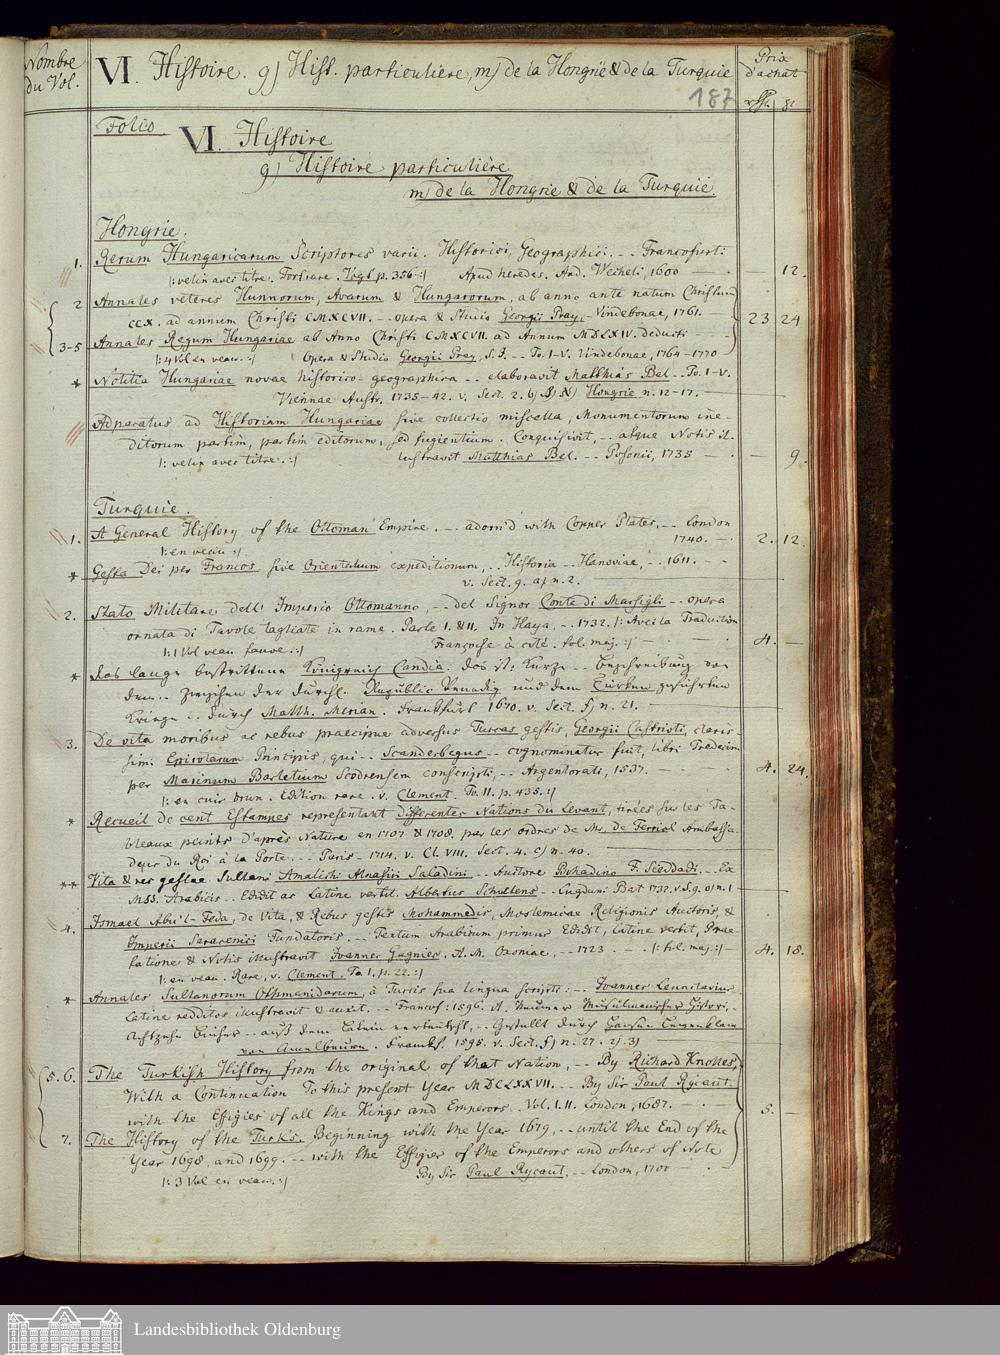 Nombre du Vol.
VI. Histoire. g) Hist. particuliere, m) de la Hongrie & de la Turquie
Prix d'achat
187
gr
Folio
VI. Histoire
g) Histoire particulière
m) de la Hongrie & de la Turquie
Hongrie.
1. Rerum Hungaricarum Scriptores varii. Historici, Geographici. -- Francofurti
|: velin avec titre. Fort rare. Vogt p. 356 :| Apud heredes. And. Wecheli, 1600 — 12.
2 Annales veteres Hunnorum, Avarum & Hungarorum, ab anno ante natum Christum
CCX. ad annum Christi CMXCVII. -- opera & studio Georgii Pray. Vindebonae, 1761. — 23 24
3-5 Annales Regum Hungariae ab Anno Christi CMXCVII. ad Annum MDLXIV. deducti
|: 4 Vol en veau. :| Opera & Studio Georgii Pray, S.J. -- To. I-V. Vindebonae, 1764-1770
* Notitia Hungariae novae historico-geographica -- elaboravit Matthias Bel -- To. I-V.
Viennae Austr. 1735-42. v. Sect. 2. Hongrie n. 12-17. —
Adparatus ad Historiam Hungariae sive collectio miscella, Monumentorum ine-
ditorum partim, partim editorum, sed fugientium. Conquisivit, -- atque Notis il-
|: velin avec titre. :| lustravit Matthias Bel. -- Posonii, 1735 — — 9.
Turquie.
1. A General History of the Ottoman Empire. -- adorn'd with Copper Plates, -- London
1740. — 2. 12.
|: en veau :|
* Gesta Dei per Francos sive Orientalium expeditionum, -- Historia -- Hanoviae, -- 1611. --
v. Sect. g. a) n. 2.
2. Stato Militare dell' Imperio Ottomanno, -- del Signor Conte di Marsigli -- opera
ornata di Tavole tagliate in rame. Parte I. & II. In Haya, -- 1732. |: Avec la Traduction
|: 1 Vol veau fauve. :| Françoise à côté. fol. maj. :| — 4. —
* das lange bestrittene Königreich Candia. das ist: Kurze -- Beschreibung von
dem -- zwischen der durchl. Republic Venedig und dem Türken geführten
Kriege -- durch Matth. Merian. Frankfurt 1670. v. Sect. f) n. 21. —
3. De vita moribus ac rebus praecipue adversus Turcas gestis, Georgii Castrioti, claris-
simi Epirotarum Principis, qui -- Scanderbegus -- cognominatus fuit, libri Tredecim
per Marinum Barletium Scodrensem conscripti, -- Argentorati, 1537. — 4. 24.
|: en cuir brun. Edition rare. v. Clement. To. II. p. 435. :|
* Recueil de cent Estampes representant differentes Nations du Levant, tirées sur les Ta-
bleaux peints d'après Nature en 1707 & 1708. par les ordres de Mr. de Ferriol Ambassa-
deur du Roi à la Porte. -- Paris - 1714. v. Cl. VIII. Sect. 4. c) n. 40.
** Vita & res gestae Sultani Amalichi Alnasiri Saladini -- Auctore Bohadino F. Sjeddadi. -- Ex
MSS. Arabicis -- Edidit ac Latine vertit. Albertus Schultens -- Lugduni Bat 1732. v. S. g. o) n. 1
4. Ismael Abu'l-Feda, de Vita, & Rebus gestis Mohammedis, Moslemicae Religionis Auctoris, &
Imperii Saracenici Fundatoris. -- Textum Arabicum primus Edidit, Latine vertit, Prae
fatione & Notis illustravit Joannes Gagnier. A. M. Oxoniae, -- 1723 -- |: fol. maj. :| — 4. 18.
|: en veau. Rare. v. Clement. To. 1. p. 22. :|
* Annales Sultanorum Othmanidarum, à Turcis sua lingua scripti: -- Joannes Leunclavius
Latine redditos illustravit & auxit. -- Francof: 1596. it. Neuwer Musulmanischer Histori,
Achtzehn Bücher -- auß dem Latein verteutscht, -- Gestellt durch Hansen Lewenklaw
von Amelbeurn. Franckf. 1595. v. Sect. f) n. 27. 2). 3)
5. 6. The Turkish History from the original of that Nation, -- By Richard Knolles,
With a Continuation To this present Year MDCLXXVII. -- By Sir Paul Rycaut.
with the Effigies of all the Kings and Emperors. Vol. I. II. London, 1687. — 5. —
7. The History of the Turk's. Beginning with the Year 1679, -- until the End of the
Year 1698, and 1699. -- with the Effigies of the Emperors and others of Note
|: 3 Vol en veau. :| By Sir Paul Rycaut. -- London, 1700 —
Landesbibliothek Oldenburg